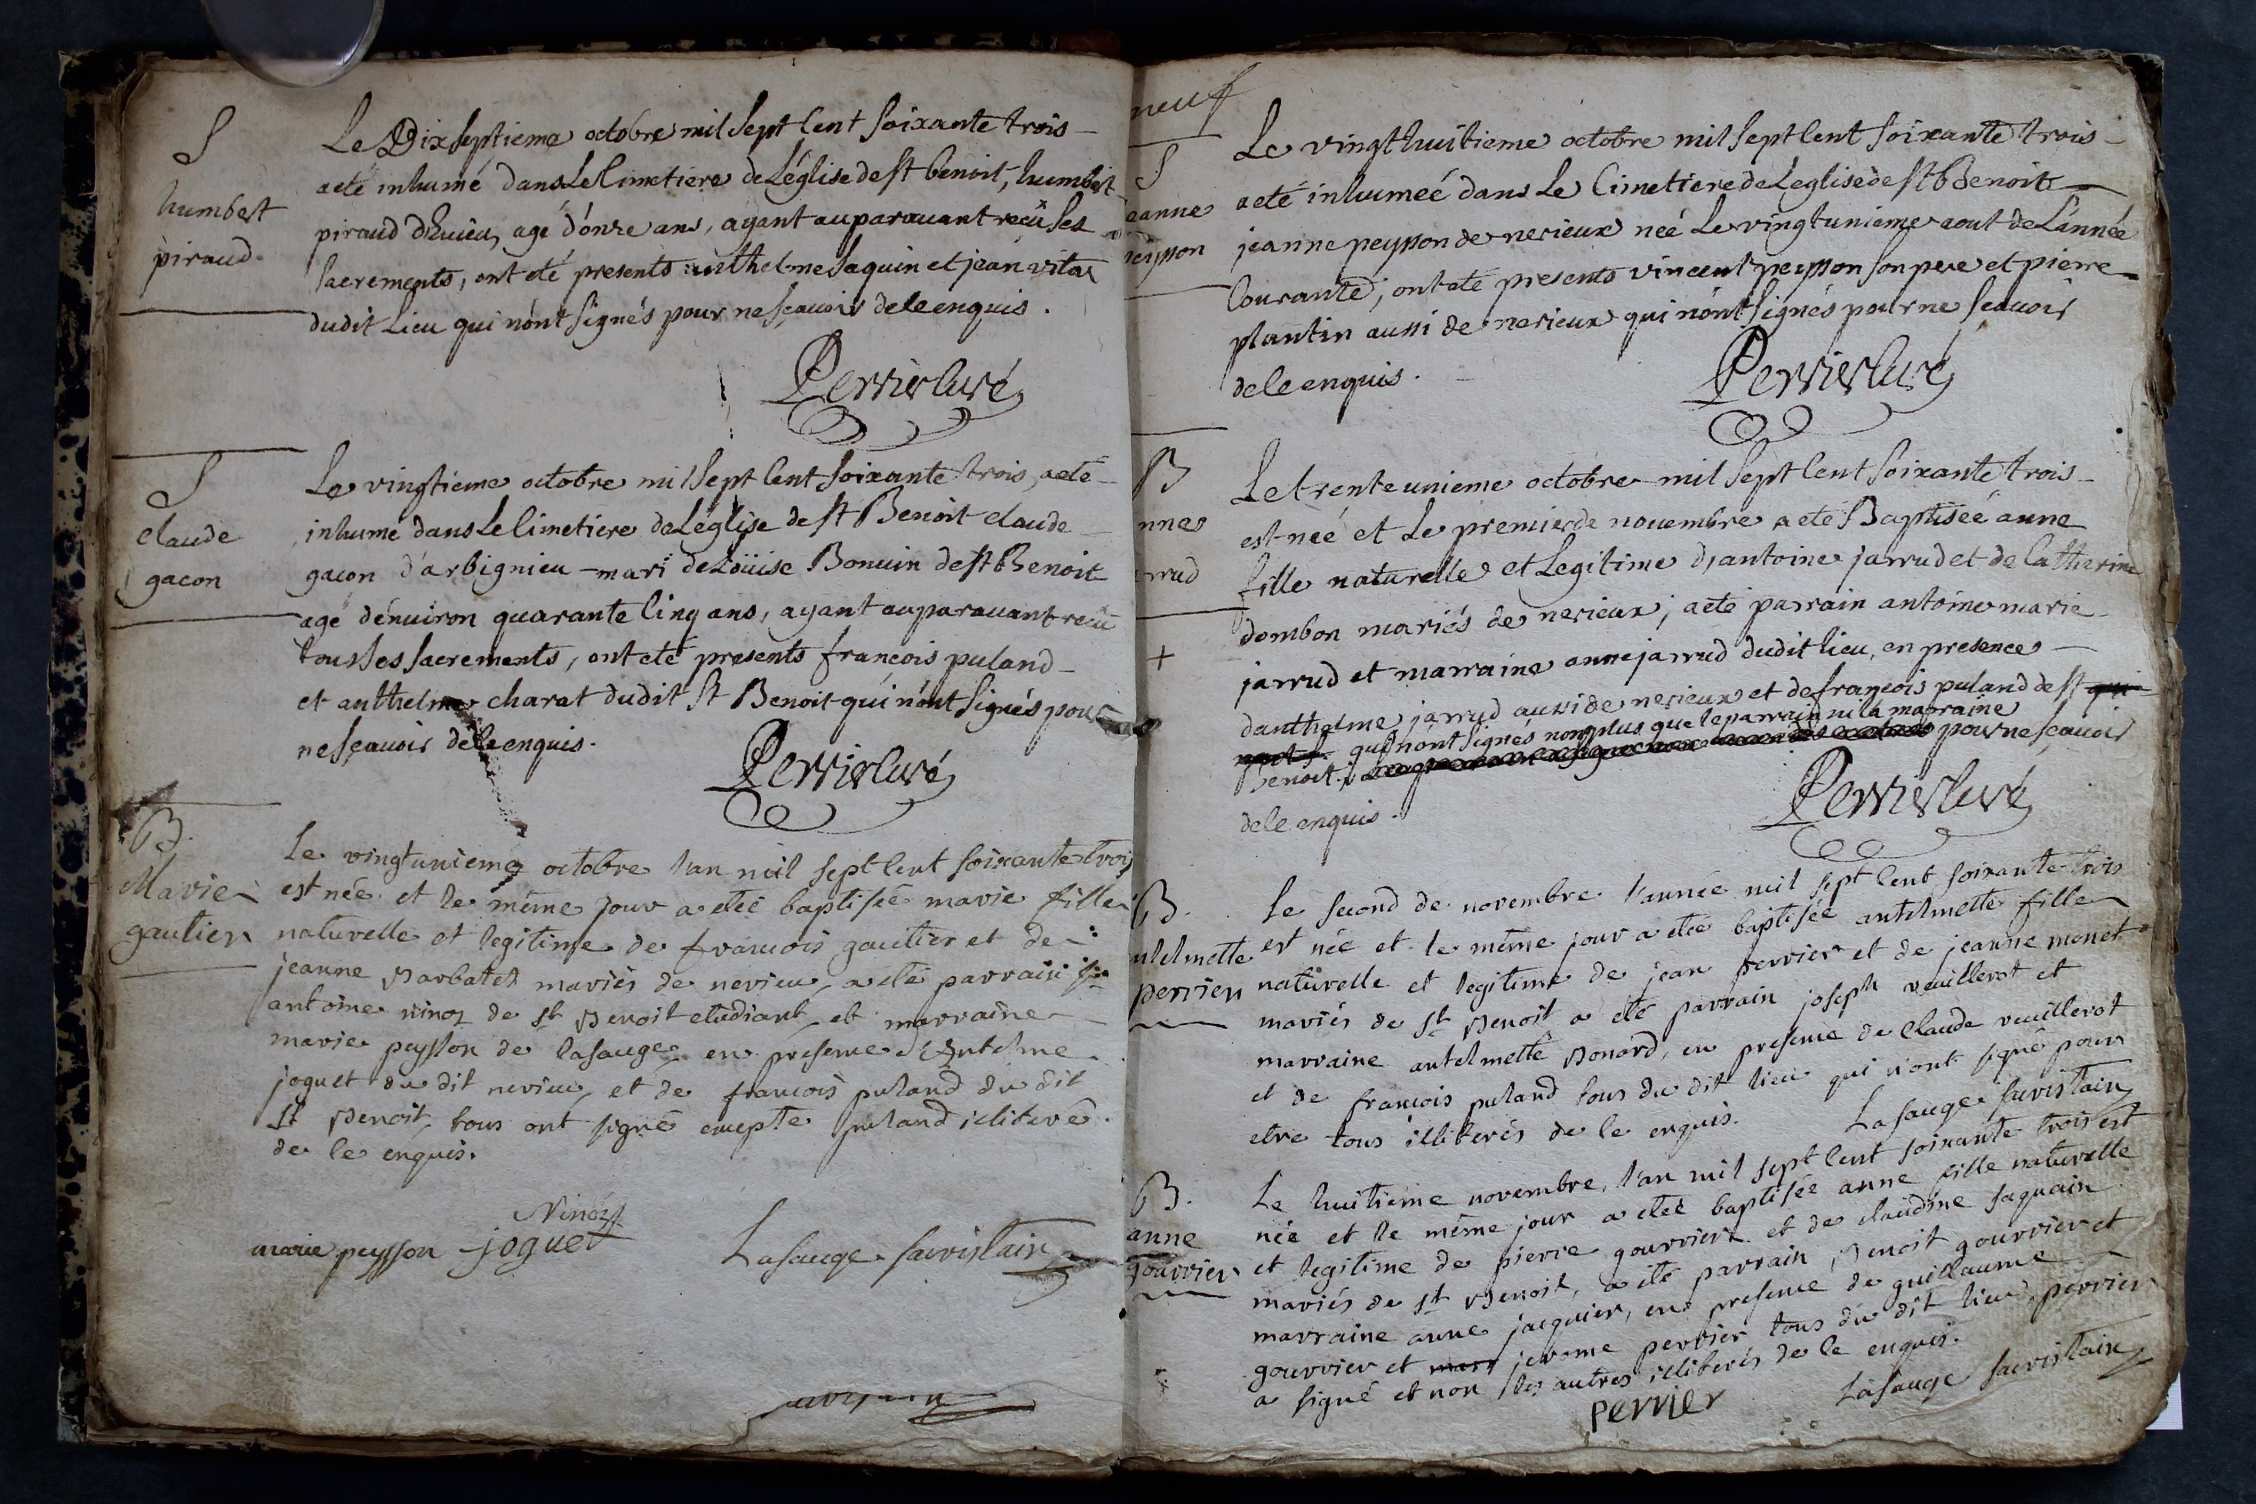 S
humbert
piraud.
Le Dixseptieme octobre mil sept cent soixante trois
a eté inhumé dans Le Cimetiere de L'église de st benoit, humbert
piraud d'Evieu, agé d'onze ans, ayant auparavant reçu ses
sacrements, ont eté presents anthelme saquin et jean vita
dudit Lieu qui n'ont signés pour ne sçavoir de ce enquis.
Perrier Curé
S
claude
gacon
Le vingtieme octobre mil sept cent soixante trois, a eté
inhumé dans Le Cimetiere de L'église de st Benoit claude
gacon d'arbignieu mari de Loüise Bonuin de st Benoit
agé d'enuiron quarante cinq ans, ayant auparauant reçu
tous ses sacrements, ont eté presents francois puland
et anthelme charat dudit st Benoit qui n'ont signés pour
ne sçauoir de ce enquis.
Perrier Curé
B.
Marie
gautier
Le vingtunieme octobre l'an mil sept cent soixante trois
est née et le même jour a eteé baptisée marie fille
naturelle et legitime de francois gautier et de
jeanne Barbatet mariés de nerieu, a eté parrain sr
antoine ninoz de st Benoit etudiant et marraine
marie peysson de lasauge en presence d'Antelme
joguet du dit nerieu et de francois puland du dit
st Benoit, tous ont signé excepte puland illiteré
de ce enquis.
Ninoz
marie peysson joguet
Lasauge sacristain
neuf
S
jeanne
peysson
Le vingthuitieme octobre mil sept cent soixante trois
a eté inhumeé dans Le Cimetiere de Leglise de st Benoit
jeanne peysson de nerieux née Le vingtunieme aout de L'année
Courante, ont eté presents vincent peysson son pere et pierre
plantin aussi de nerieux qui n'ont signés pour ne sçauoir
de ce enquis.
Perrier Curé
B
nne
rrud
+
Le trenteunieme octobre mil sept cent soixante trois
est neé et Le premier de nouembre a eté Baptiseé anne
fille naturelle et Legitime d'antoine jarrud et de Catherine
dombon mariés de nerieux; a eté parrain antoine marie
jarrud et marraine anne jarrud dudit lieu, en presence
danthelme jarrud aussi de nerieux et de francois puland de st
qui n'ont signés non plus que le parrain ni la marraine
Benoit, pour ne sçauoir
de ce enquis.
Perrier Curé
B.
ntelmette
perrier
Le second de novembre l'année mil sept cent soixante trois
est née et le même jour a eteé baptisée antelmette fille
naturelle et legitime de jean perrier et de jeanne monet
mariés de st Benoit a eté parrain joseph veuillerot et
marraine antelmette Bonard, en presence de claude veuillerot
et de francois puland tous du dit lieu qui n'ont signé pour
etre tous illiterés de ce enquis.
Lasauge sacristain
B.
anne
gourrier
Le huitieme novembre, l'an mil sept cent soixante trois est
née et le même jour a eteé baptisée anne fille naturelle
et legitime de pierre gourrier et de claudine saquain
mariés de st Benoit, a eté parrain, Benoit gourrier et
marraine anne jacquier, en presence de guillaume
gourrier et jerome perrier tous du dit lieu, perrier
a signé et non les autres illiterés de ce enquis.
perrier
Lasauge sacristain